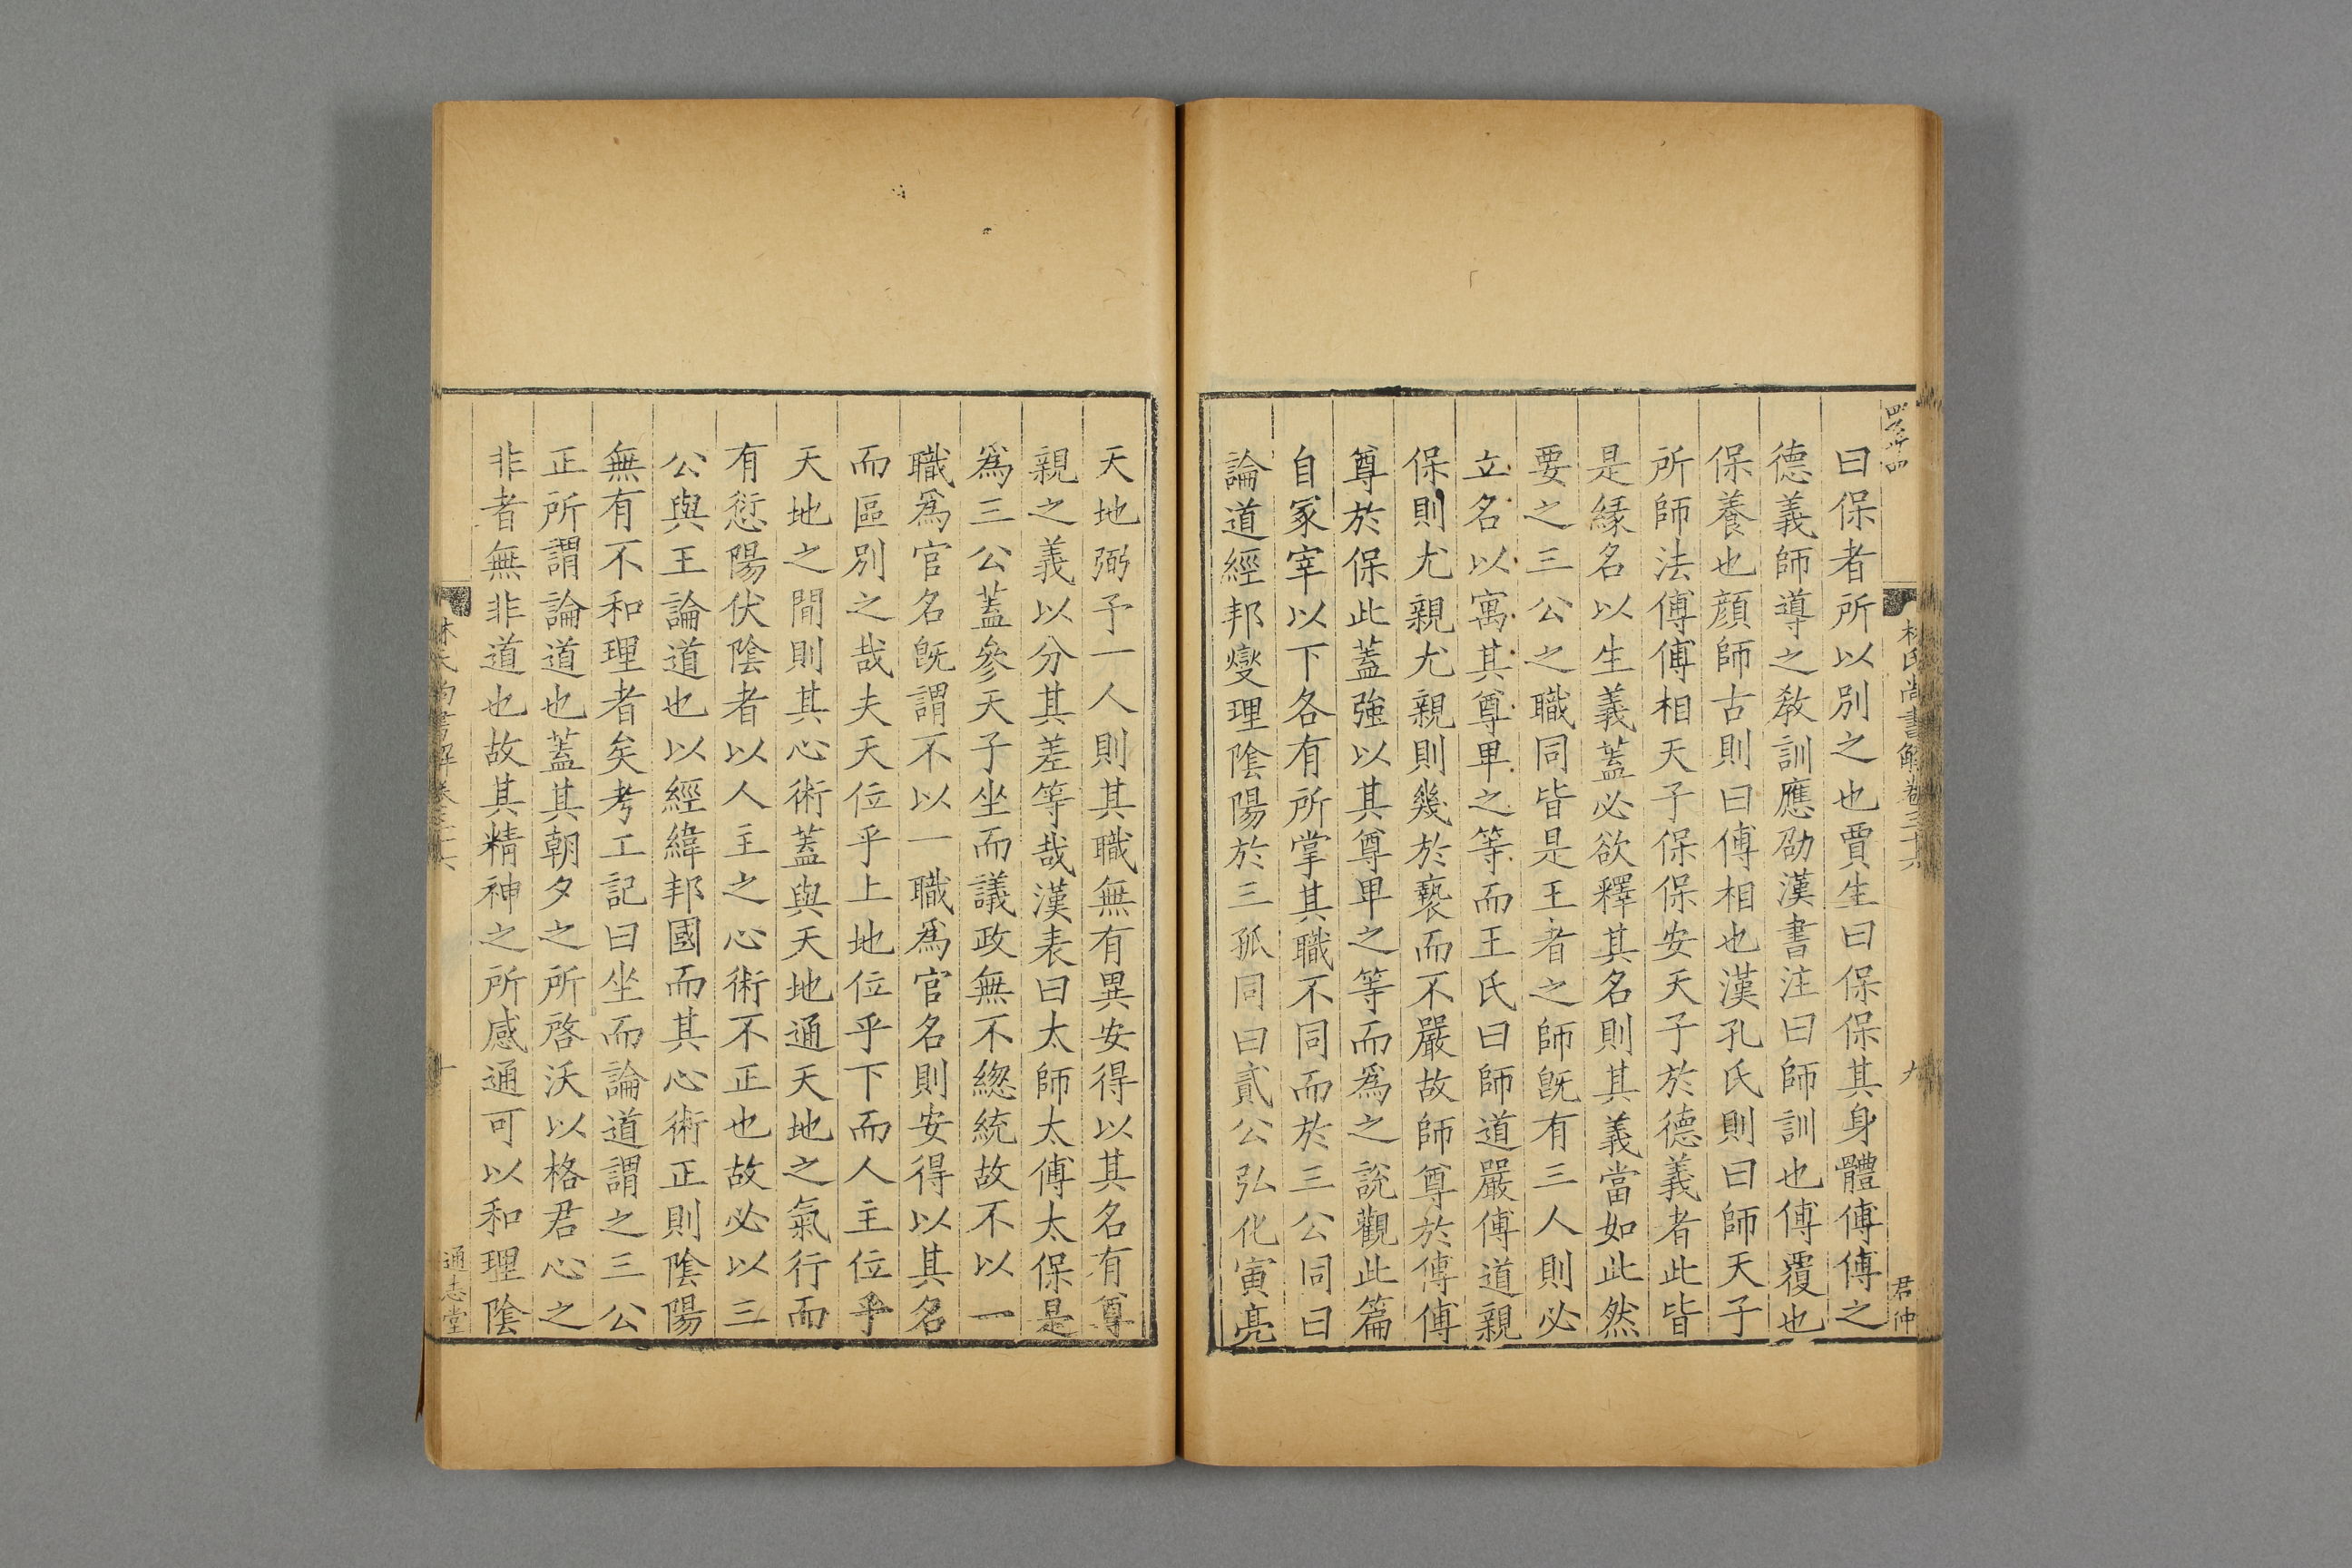 林氏尚書解卷三十六
九
君仲
曰保者所以別之也賈生曰保保其身體傅傅之
德義師導之敎訓應劭漢書注曰師訓也傅覆也
保養也顔師古則曰傅相也漢孔氏則曰師天子
所師法傅傅相天子保保安天子於德義者此皆
是緣名以生義蓋必欲釋其名則其義當如此然
要之三公之職同皆是王者之師旣有三人則必
立名以寓其尊卑之等而王氏曰師道嚴傅道親
保則尤親尤親則幾於褻而不嚴故師尊於傅傅
尊於保此蓋強以其尊卑之等而爲之說觀此篇
自冢宰以下各有所掌其職不同而於三公同曰
論道經邦燮理陰陽於三孤同曰貳公弘化寅亮
天地弼予一人則其職無有異安得以其名有尊
親之義以分其差等哉漢表曰太師太傅太保是
爲三公蓋參天子坐而議政無不緫統故不以一
職爲官名旣謂不以一職爲官名則安得以其名
而區別之哉夫天位乎上地位乎下而人主位乎
天地之間則其心術蓋與天地通天地之氣行而
有愆陽伏陰者以人主之心術不正也故必以三
公與王論道也以經緯邦國而其心術正則陰陽
無有不和理者矣考工記曰坐而論道謂之三公
正所謂論道也蓋其朝夕之所啓沃以格君心之
非者無非道也故其精神之所感通可以和理陰
林氏尚書解卷三十六
十
通志堂